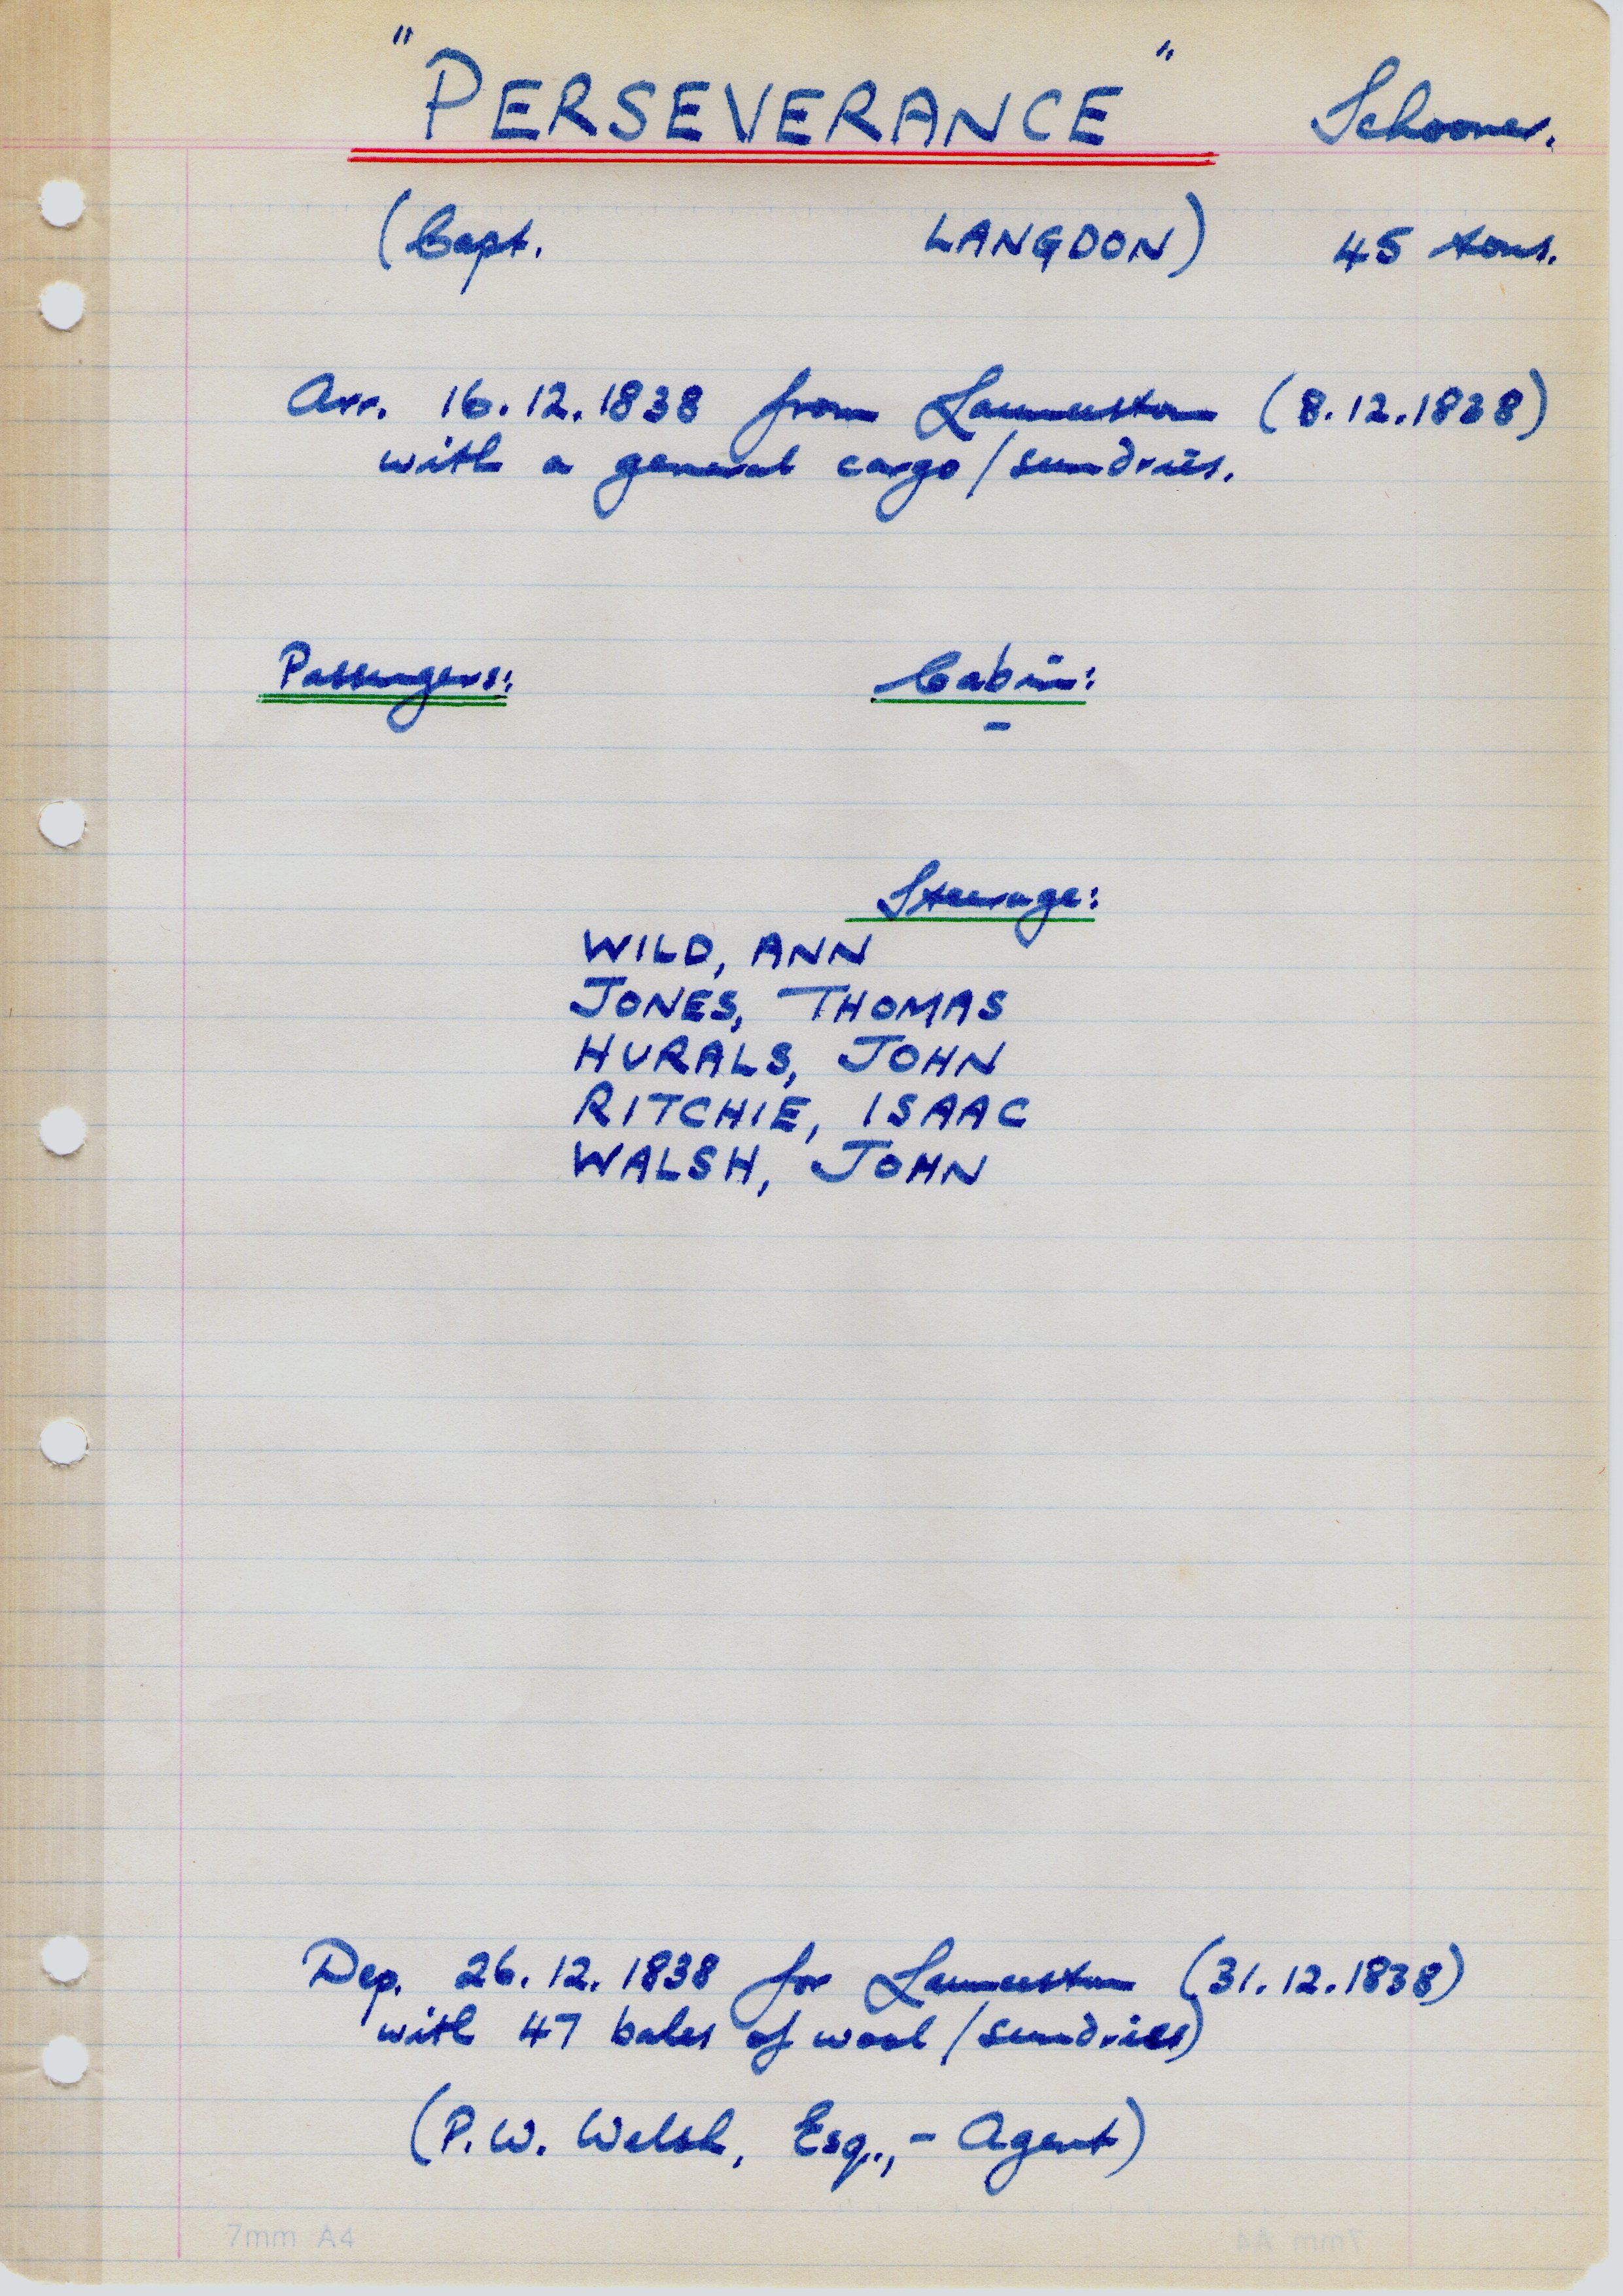 "PERSEVERANCE" Schooner.
(Capt. LANGDON) 45 tons.
Arr. 16.12.1838 from Launceston (8.12.1838)
with a general cargo/sundries.
Passengers: Cabin:
-
Steerage:
WILD, ANN
JONES, THOMAS
HURALS, JOHN
RITCHIE, ISAAC
WALSH, JOHN
Dep. 26.12.1838 for Launceston (31.12.1838)
with 47 bales of wool/sundries)
(P.W. Welsh, Esq., - Agent)
7mm A4
7mm A4